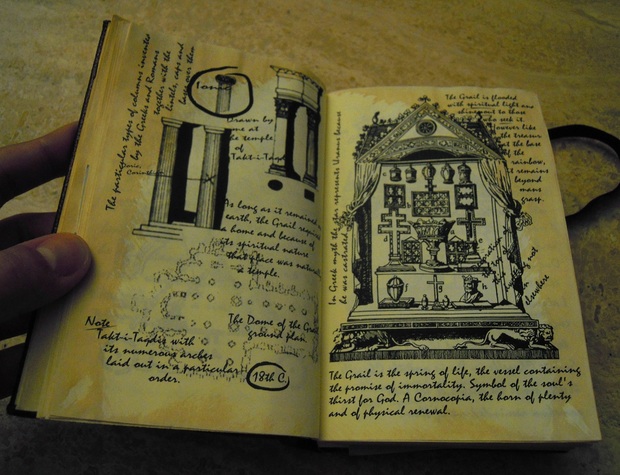 The particular types of columns invented
by the Greeks and Romans
together with the
lintels, caps and
base over them
Ionic
Doric
Corinthian
Drawn by
me at
the temple
of
Takt-i-Taqd
As long as it remained
earth, the Grail req
a home and because of
its spiritual nature
that place was natural
a temple.
The Dome of the Gra
ground plan
18th C.
Note
Takt-i-Taqdis with
its numerous arches
laid out in a particular
order.
In Greek myth the altar represents Uranus because
he was castrated
The Grail is flooded
with spiritual light and
shines out to those
who seek it.
However like
the treasure
at the base
of the
rainbow,
it remains
beyond
mans
grasp.
not
elsewhere
The Grail is the spring of life, the vessel containing
the promise of immortality. Symbol of the soul's
thirst for God. A Cornocopia, the horn of plenty
and of physical renewal.